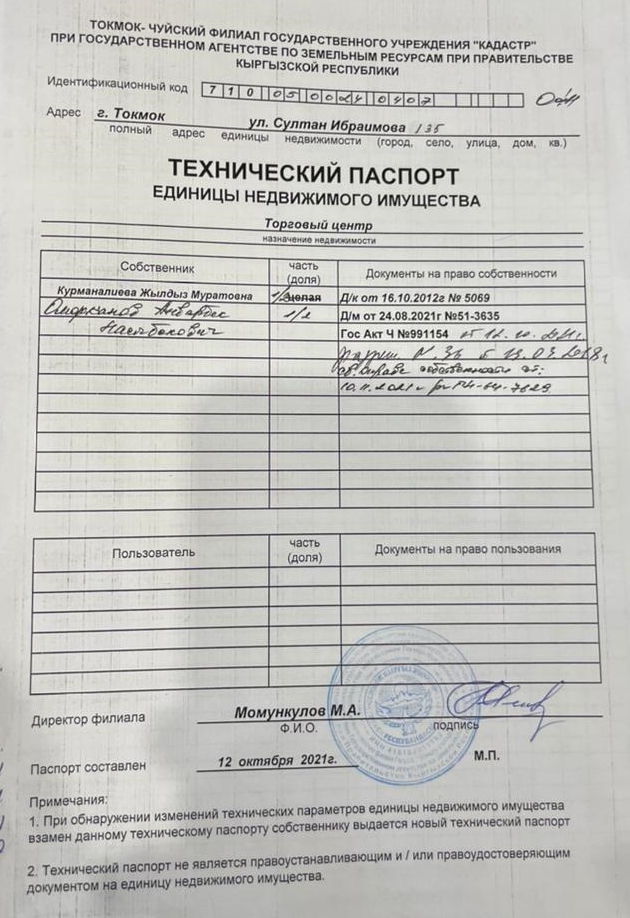 ТОКМОК- ЧУЙСКИЙ ФИЛИАЛ ГОСУДАРСТВЕННОГО УЧРЕЖДЕНИЯ "КАДАСТР"
ПРИ ГОСУДАРСТВЕННОМ АГЕНТСТВЕ ПО ЗЕМЕЛЬНЫМ РЕСУРСАМ ПРИ ПРАВИТЕЛЬСТВЕ
КЫРГЫЗСКОЙ РЕСПУБЛИКИ
Идентификационный код 7 1 0 05 0024 0407
Адрес г. Токмок ул. Султан Ибраимова 135
полный адрес единицы недвижимости (город, село, улица, дом, кв.)
ТЕХНИЧЕСКИЙ ПАСПОРТ
ЕДИНИЦЫ НЕДВИЖИМОГО ИМУЩЕСТВА
Торговый центр
назначение недвижимости
Собственник часть (доля) Документы на право собственности
Курманалиева Жылдыз Муратовна 1/2 целая Д/к от 16.10.2012г № 5069
Анарбек 1/2 Д/м от 24.08.2021г №51-3635
Гос Акт Ч №991154 от
собственности от:
10.11.2021г
Пользователь часть (доля) Документы на право пользования
Директор филиала Момункулов М.А.
Ф.И.О. подпись
Паспорт составлен 12 октября 2021г. М.П.
Примечания:
1. При обнаружении изменений технических параметров единицы недвижимого имущества
взамен данному техническому паспорту собственнику выдается новый технический паспорт
2. Технический паспорт не является правоустанавливающим и / или правоудостоверяющим
документом на единицу недвижимого имущества.